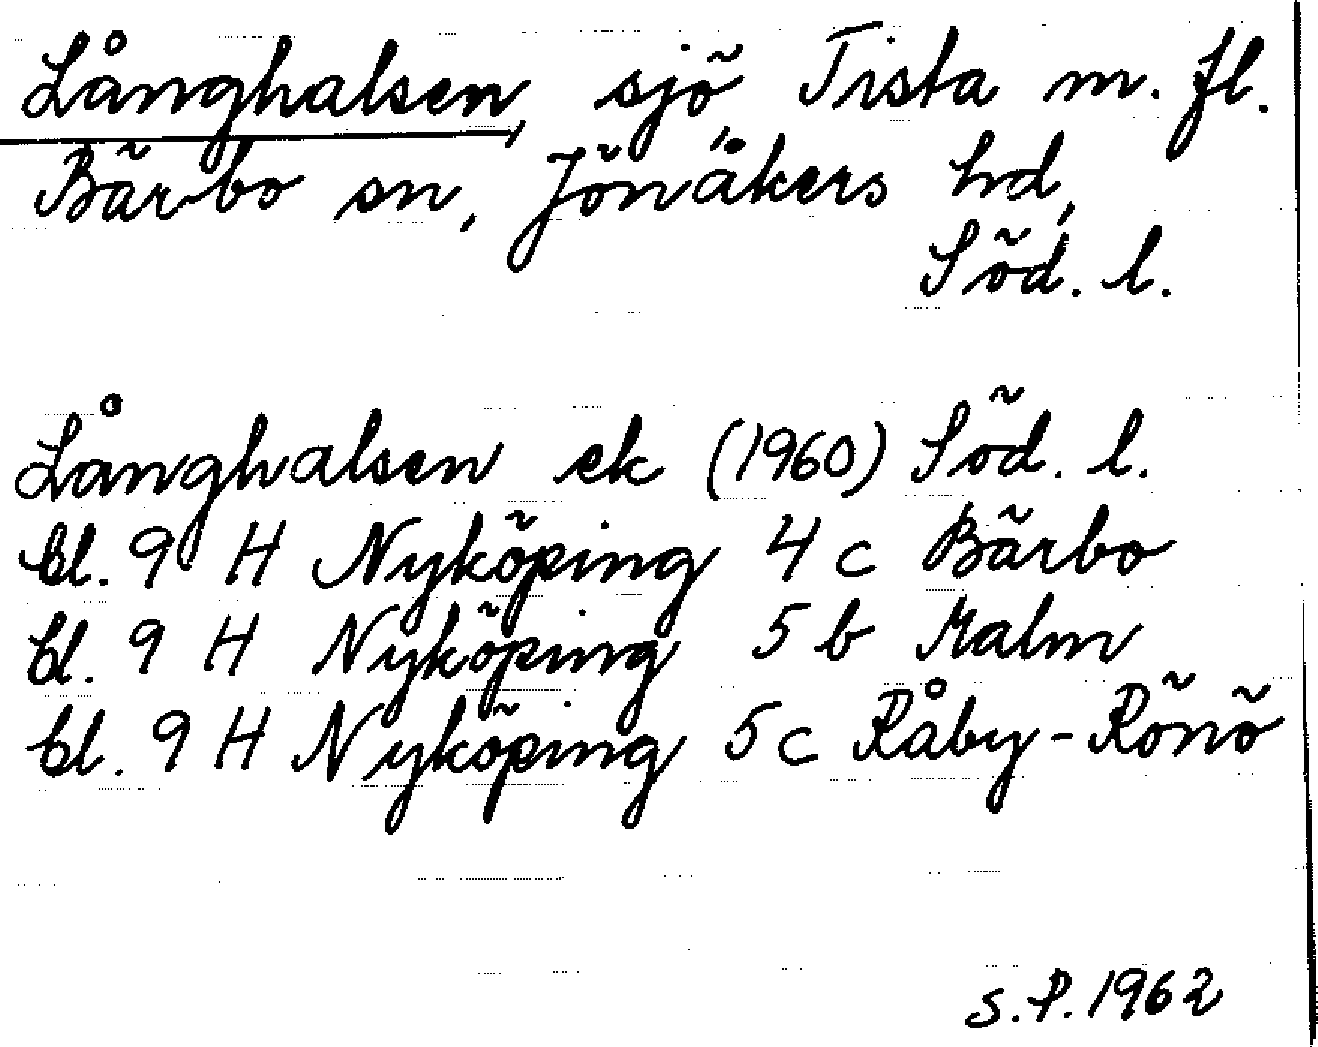 Långhalsen, sjö, Tista m. fl.
Bärbo sn, Jönåkers hd,
Söd. l.
Långhalsen ek (1960) Söd. l.
bl. 9 H Nyköping 4 c Bärbo
bl. 9 H Nyköping 5 b Malm
bl. 9 H Nyköping 5 c Råby-Rönö
S.P. 1962